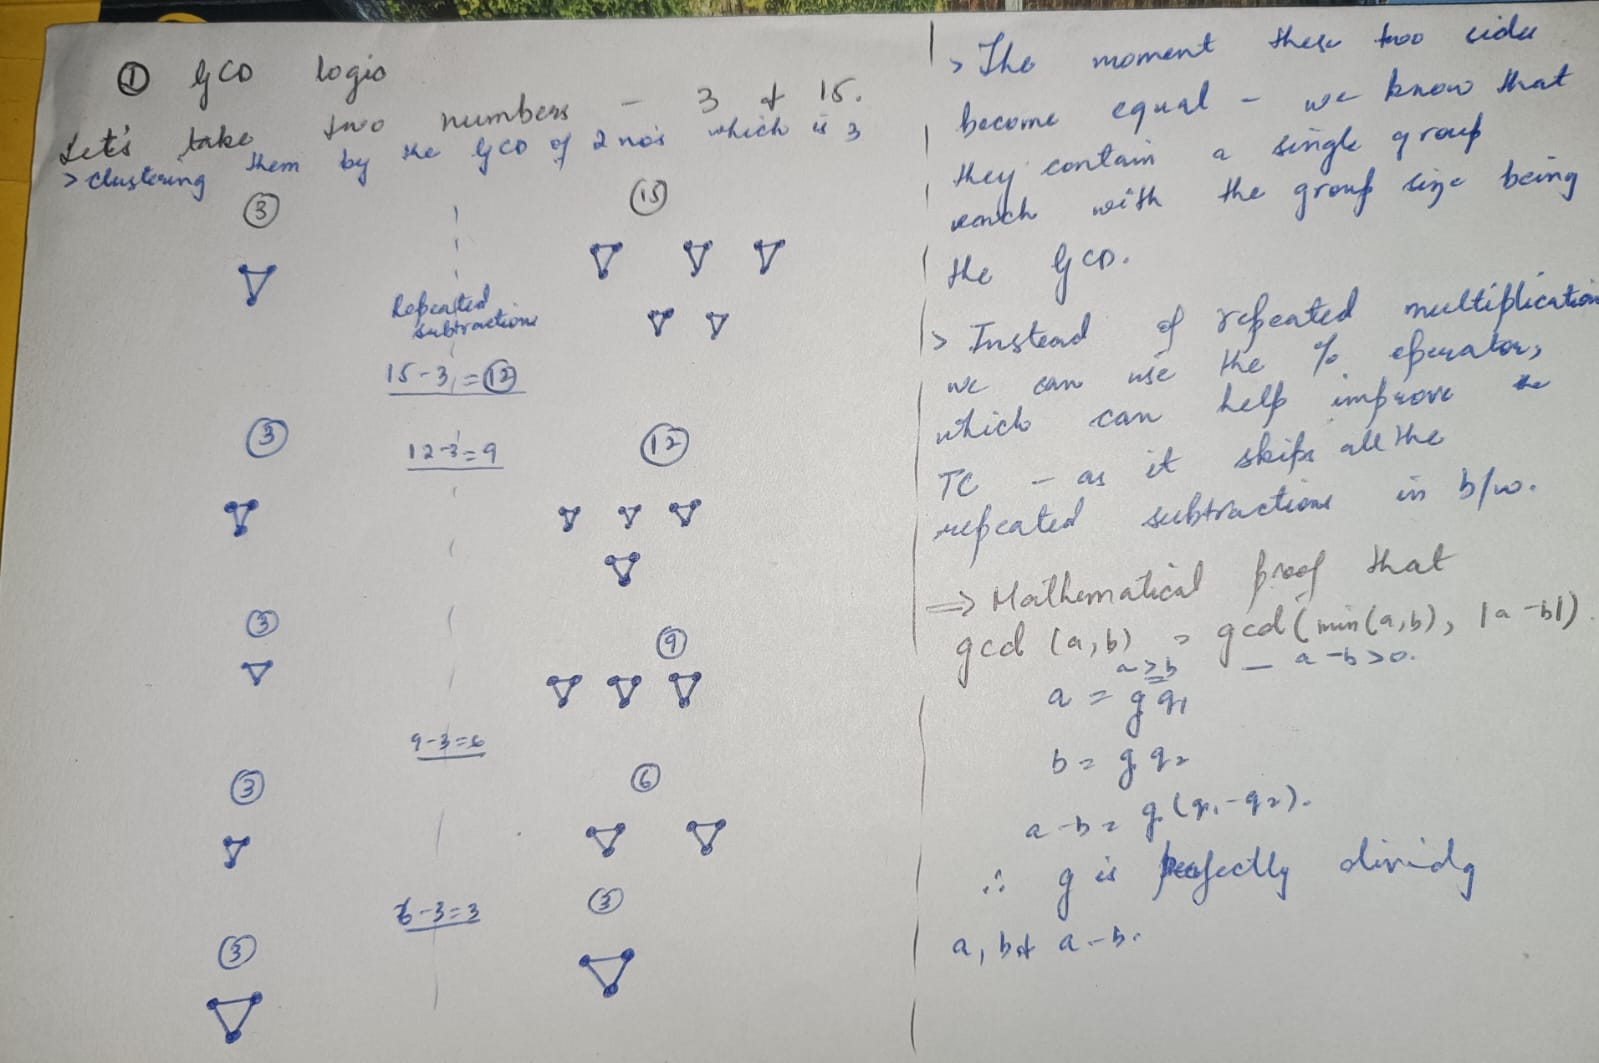 ① GCD logic
Let's take two numbers - 3 & 15.
> clustering them by the GCD of 2 no's which is 3
③ ⑮
Repeated
subtractions
15-3 = ⑫
③ ⑫
12-3=9
③ ⑨
9-3=6
③ ⑥
6-3=3
③ ③
> The moment these two sides
become equal - we know that
they contain a single group
each with the group size being
the GCD.
> Instead of repeated multiplication
we can use the % operator,
which can help improve the
TC - as it skips all the
repeated subtractions in b/w.
⇒ Mathematical proof that
gcd (a,b) = gcd(min(a,b), |a-b|)
a≥b — a-b>0.
a = g q₁
b = g q₂
a-b = g (q₁-q₂).
∴ g is perfectly dividg
a, b & a-b.